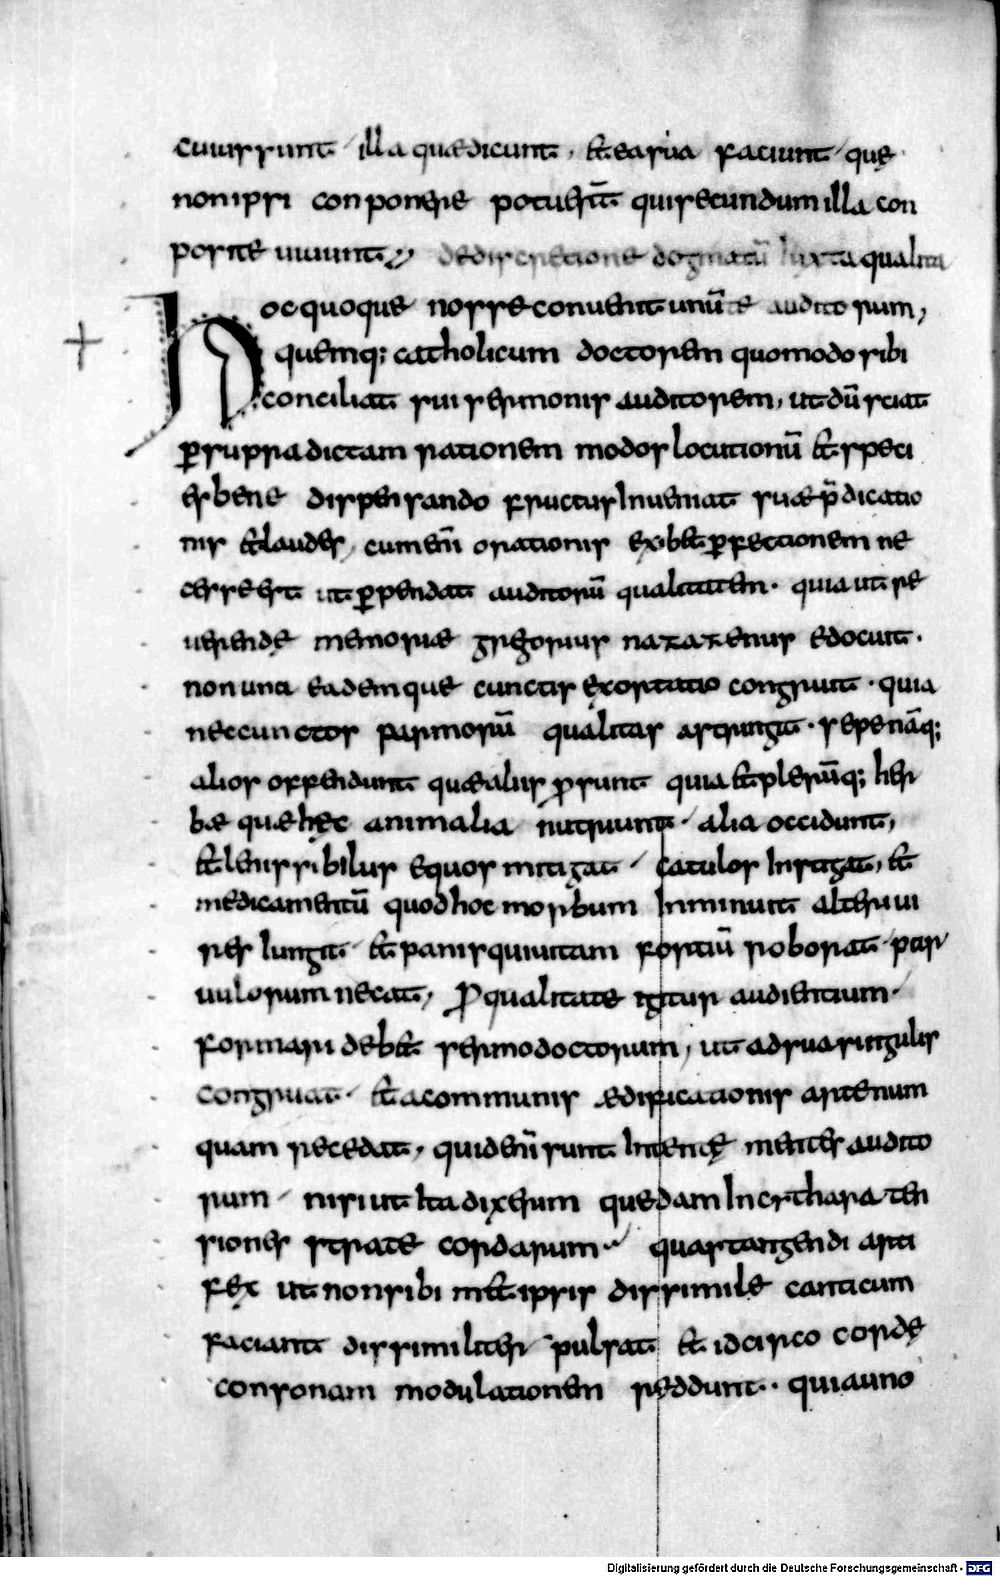 cuius sunt illa quæ dicunt, et ea sua faciunt quę
non ipsi conponere potuer̄t qui secundum illa con
posite uiuunt. de discretione dogmatū iuxta qualita
Hoc quoque nosse conuenit unū te auditorum,
quemq; catholicum doctorem quomodo sibi
conciliat sui sermonis auditorem, ut dū sciat
ꝑ supradictam rationem modos locutionū et speci
es bene dispensando fructus inueniat suæ p̄dicatio
nis et laudes, cum eni̅ orationis exibet ꝑfectionem ne
cesse est ut ꝑpendat auditorū qualitatem. quia ut re
uerendę memoriæ gregorius nazazenus edocuit.
non una eademque cunctis exortatio congruit. quia
nec cunctos par morū qualitas astringit. sepe nāq;
alios offendunt quæ aliis ꝓsunt quia et plerūq; her
bæ quæ hęc animalia nutriunt alia occidunt,
et lenis sibilus equos mitigat catulos instigat, et
medicamentū quod hoc morbum inminuit alteri ui
res iungit et panis qui uitam fortiū roborat par
uulorum necat, Pro qualitate igitur audientium.
formari debet sermo doctorum, ut ad sua singulis
congruat. et a communis ædificationis arte num
quam recedat, quid eni̅ sunt intentę mentes audito
rum nisi ut ita dixerim quedam in cythara ten
siones stratę cordarum. quas tangendi arti
fex ut non sibi met ipsis dissimile canticum
faciant dissimiliter pulsat et idcirco cordę
consonam modulationem reddunt. quia uno
Digitalisierung gefördert durch die Deutsche Forschungsgemeinschaft - DFG